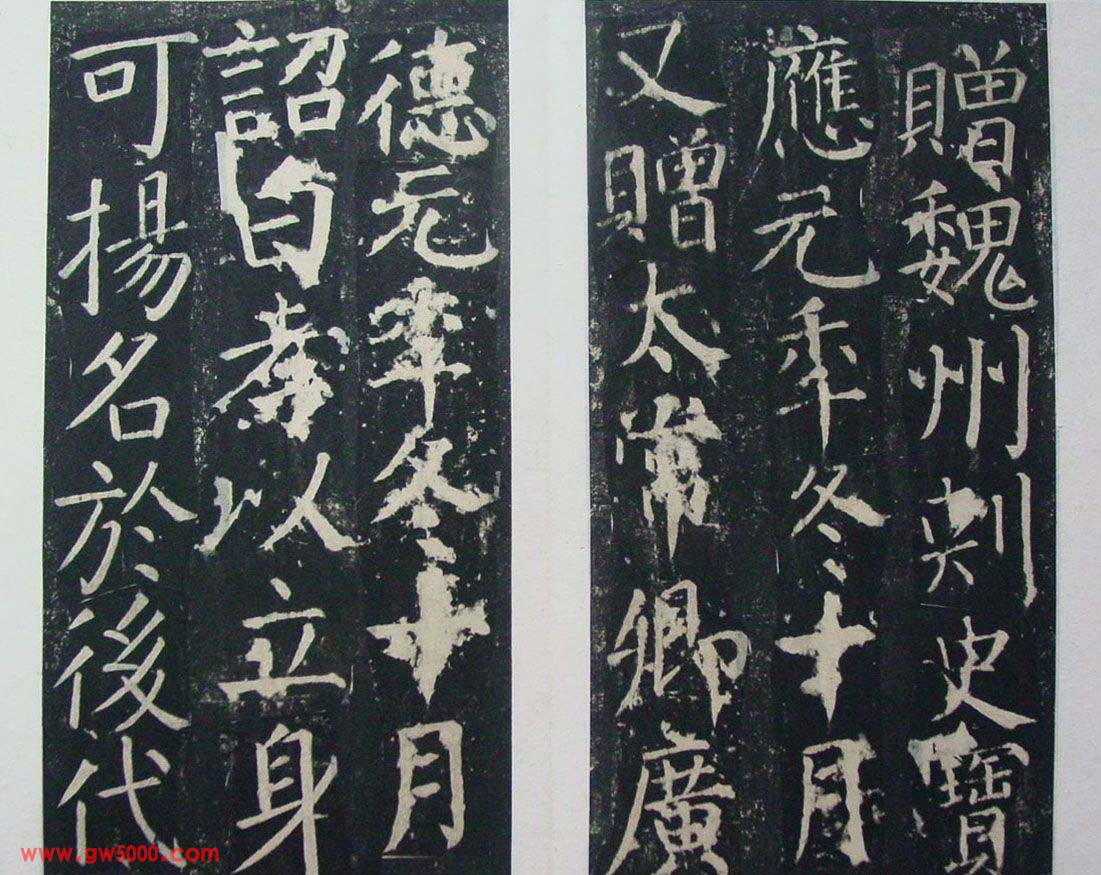 贈魏州刺史寶
應元年冬十月
又贈太常卿廣
德元年冬十月
詔曰孝以立身
可揚名於後代
www.gw5000.com